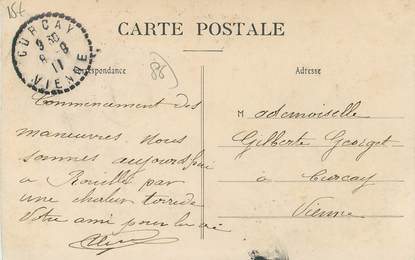 15€
CARTE POSTALE
CURCAY
9 30
8-9
11
VIENNE
88
Correspondance
Adresse
Commencement des
manœuvres. Nous
sommes aujourd'hui
a Rouillé par
une chaleur torride
Votre ami pour la vie
Mademoiselle
Gilberte Georget
a Curcay
Vienne